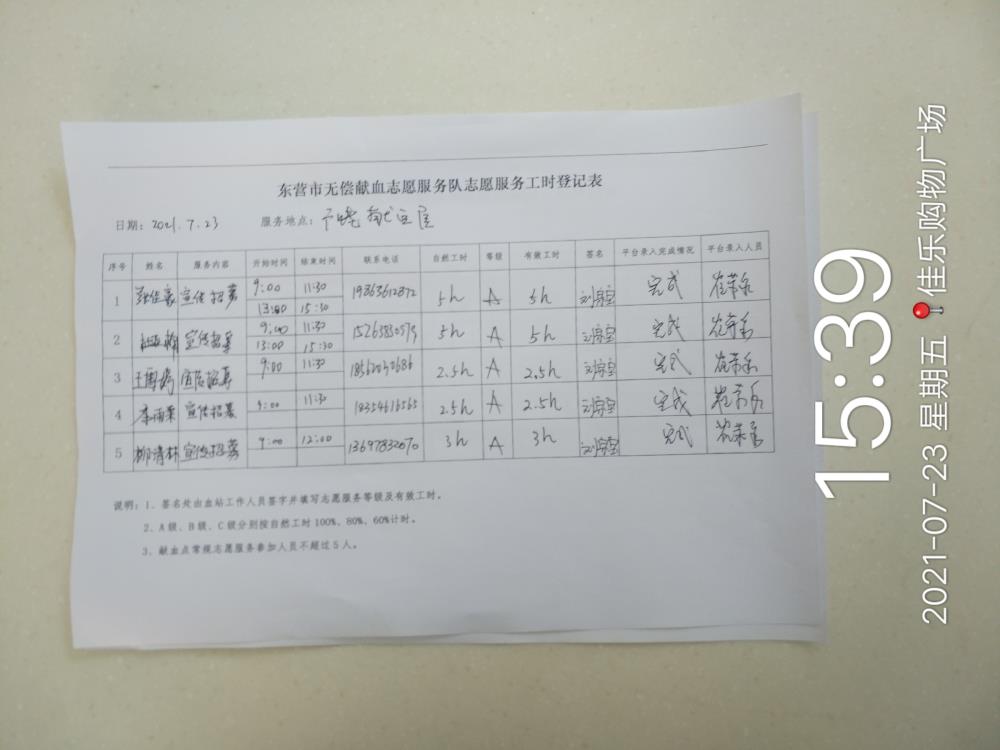 东营市无偿献血志愿服务队志愿服务工时登记表
日期：2021.7.23 服务地点：
序号 姓名 服务内容 开始时间 结束时间 联系电话 自然工时 等级 有效工时 签名 平台录入完成情况 平台录入人员
1 宣传招募 9:00 11:30 19363612872 5h A 5h 完成
13:00 15:30
2 宣传招募 9:00 11:30 5h A 5h 完成
13:00 15:30
3 宣传招募 9:00 11:30 2.5h A 2.5h 完成
4 李雨 宣传招募 9:00 11:30 18354616565 2.5h A 2.5h 完成
5 柳清林 宣传招募 9:00 12:00 13697832070 3h A 3h 完成
说明：1、签名处由血站工作人员签字并填写志愿服务等级及有效工时。
2、A级、B级、C级分别按自然工时100%、80%、60%计时。
3、献血点常规志愿服务参加人员不超过5人。
15:39
2021-07-23 星期五 佳乐购物广场